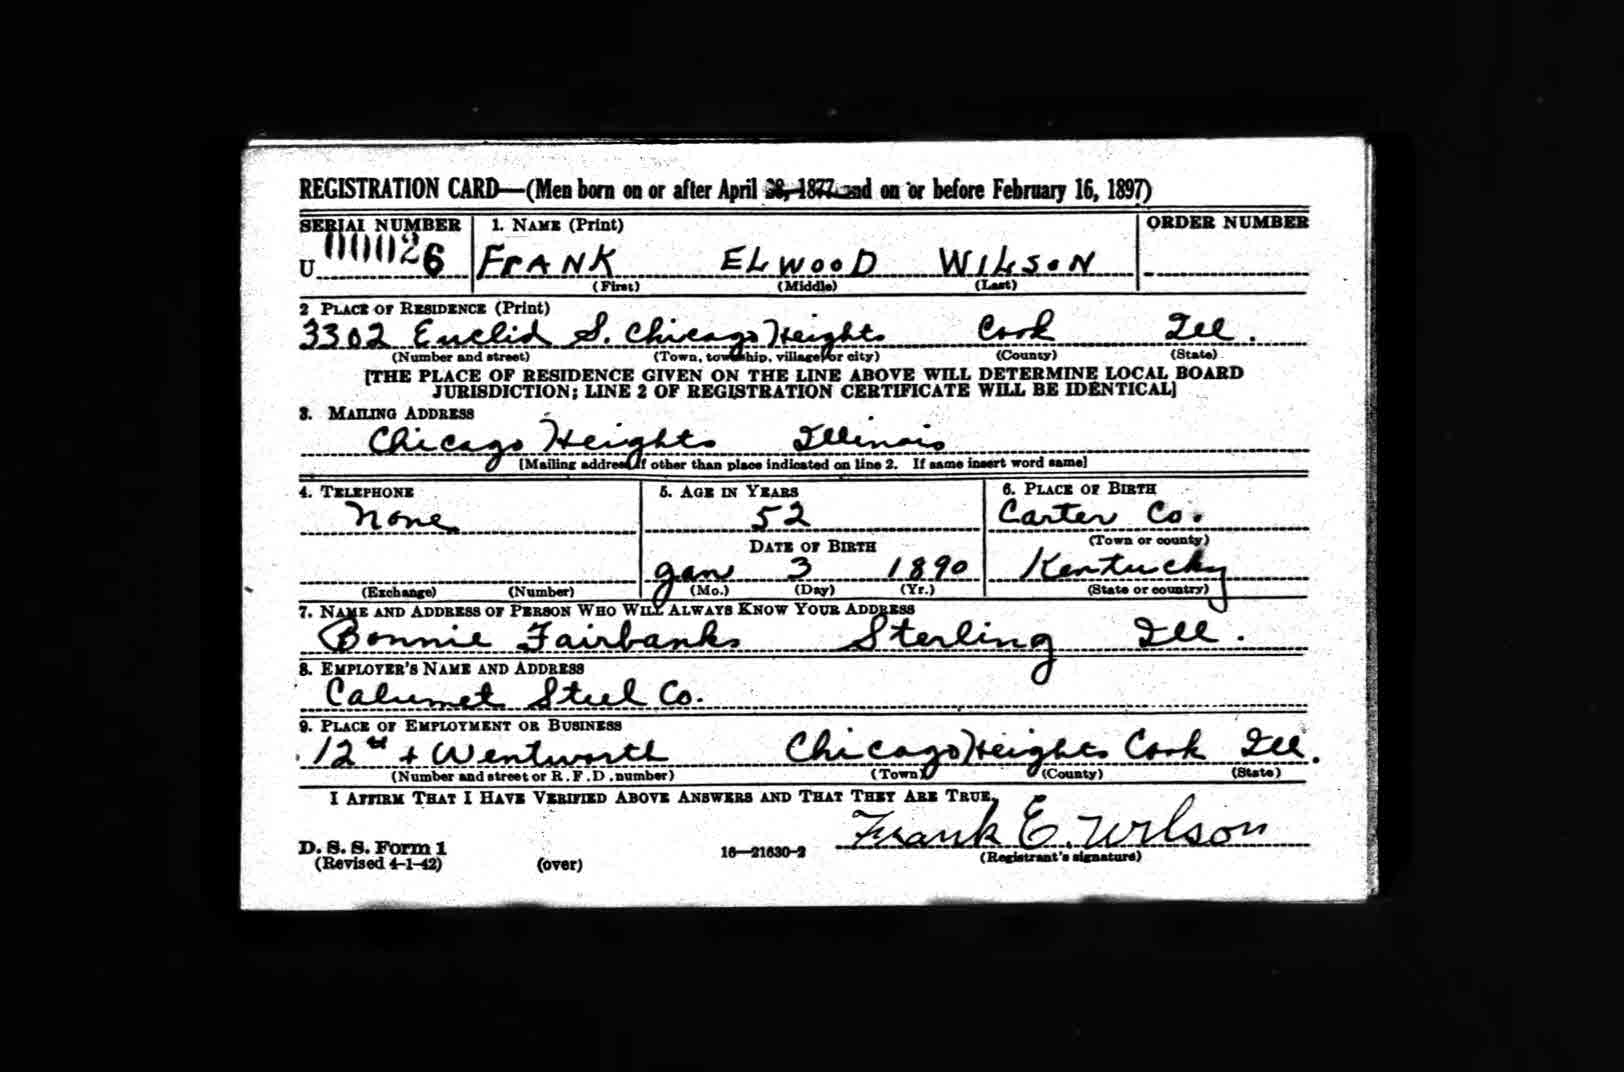 REGISTRATION CARD—(Men born on or after April 28, 1877 and on or before February 16, 1897)
SERIAL NUMBER 1. NAME (Print) ORDER NUMBER
U 00026 FRANK ELWOOD WILSON
(First) (Middle) (Last)
2 PLACE OF RESIDENCE (Print)
3302 Euclid S. Chicago Heights Cook Ill.
(Number and street) (Town, township, village or city) (County) (State)
[THE PLACE OF RESIDENCE GIVEN ON THE LINE ABOVE WILL DETERMINE LOCAL BOARD
JURISDICTION; LINE 2 OF REGISTRATION CERTIFICATE WILL BE IDENTICAL]
3. MAILING ADDRESS
Chicago Heights Illinois
[Mailing address if other than place indicated on line 2. If same insert word same]
4. TELEPHONE 5. AGE IN YEARS 6. PLACE OF BIRTH
None 52 Carter Co.
DATE OF BIRTH (Town or county)
Jan 3 1890 Kentucky
(Exchange) (Number) (Mo.) (Day) (Yr.) (State or country)
7. NAME AND ADDRESS OF PERSON WHO WILL ALWAYS KNOW YOUR ADDRESS
Bonnie Fairbanks Sterling Ill.
8. EMPLOYER'S NAME AND ADDRESS
Calumet Steel Co.
9. PLACE OF EMPLOYMENT OR BUSINESS
12th + Wentworth Chicago Heights Cook Ill.
(Number and street or R. F. D. number) (Town) (County) (State)
I AFFIRM THAT I HAVE VERIFIED ABOVE ANSWERS AND THAT THEY ARE TRUE.
Frank E. Wilson
D. S. S. Form 1 16—21630-2 (Registrant's signature)
(Revised 4-1-42) (over)